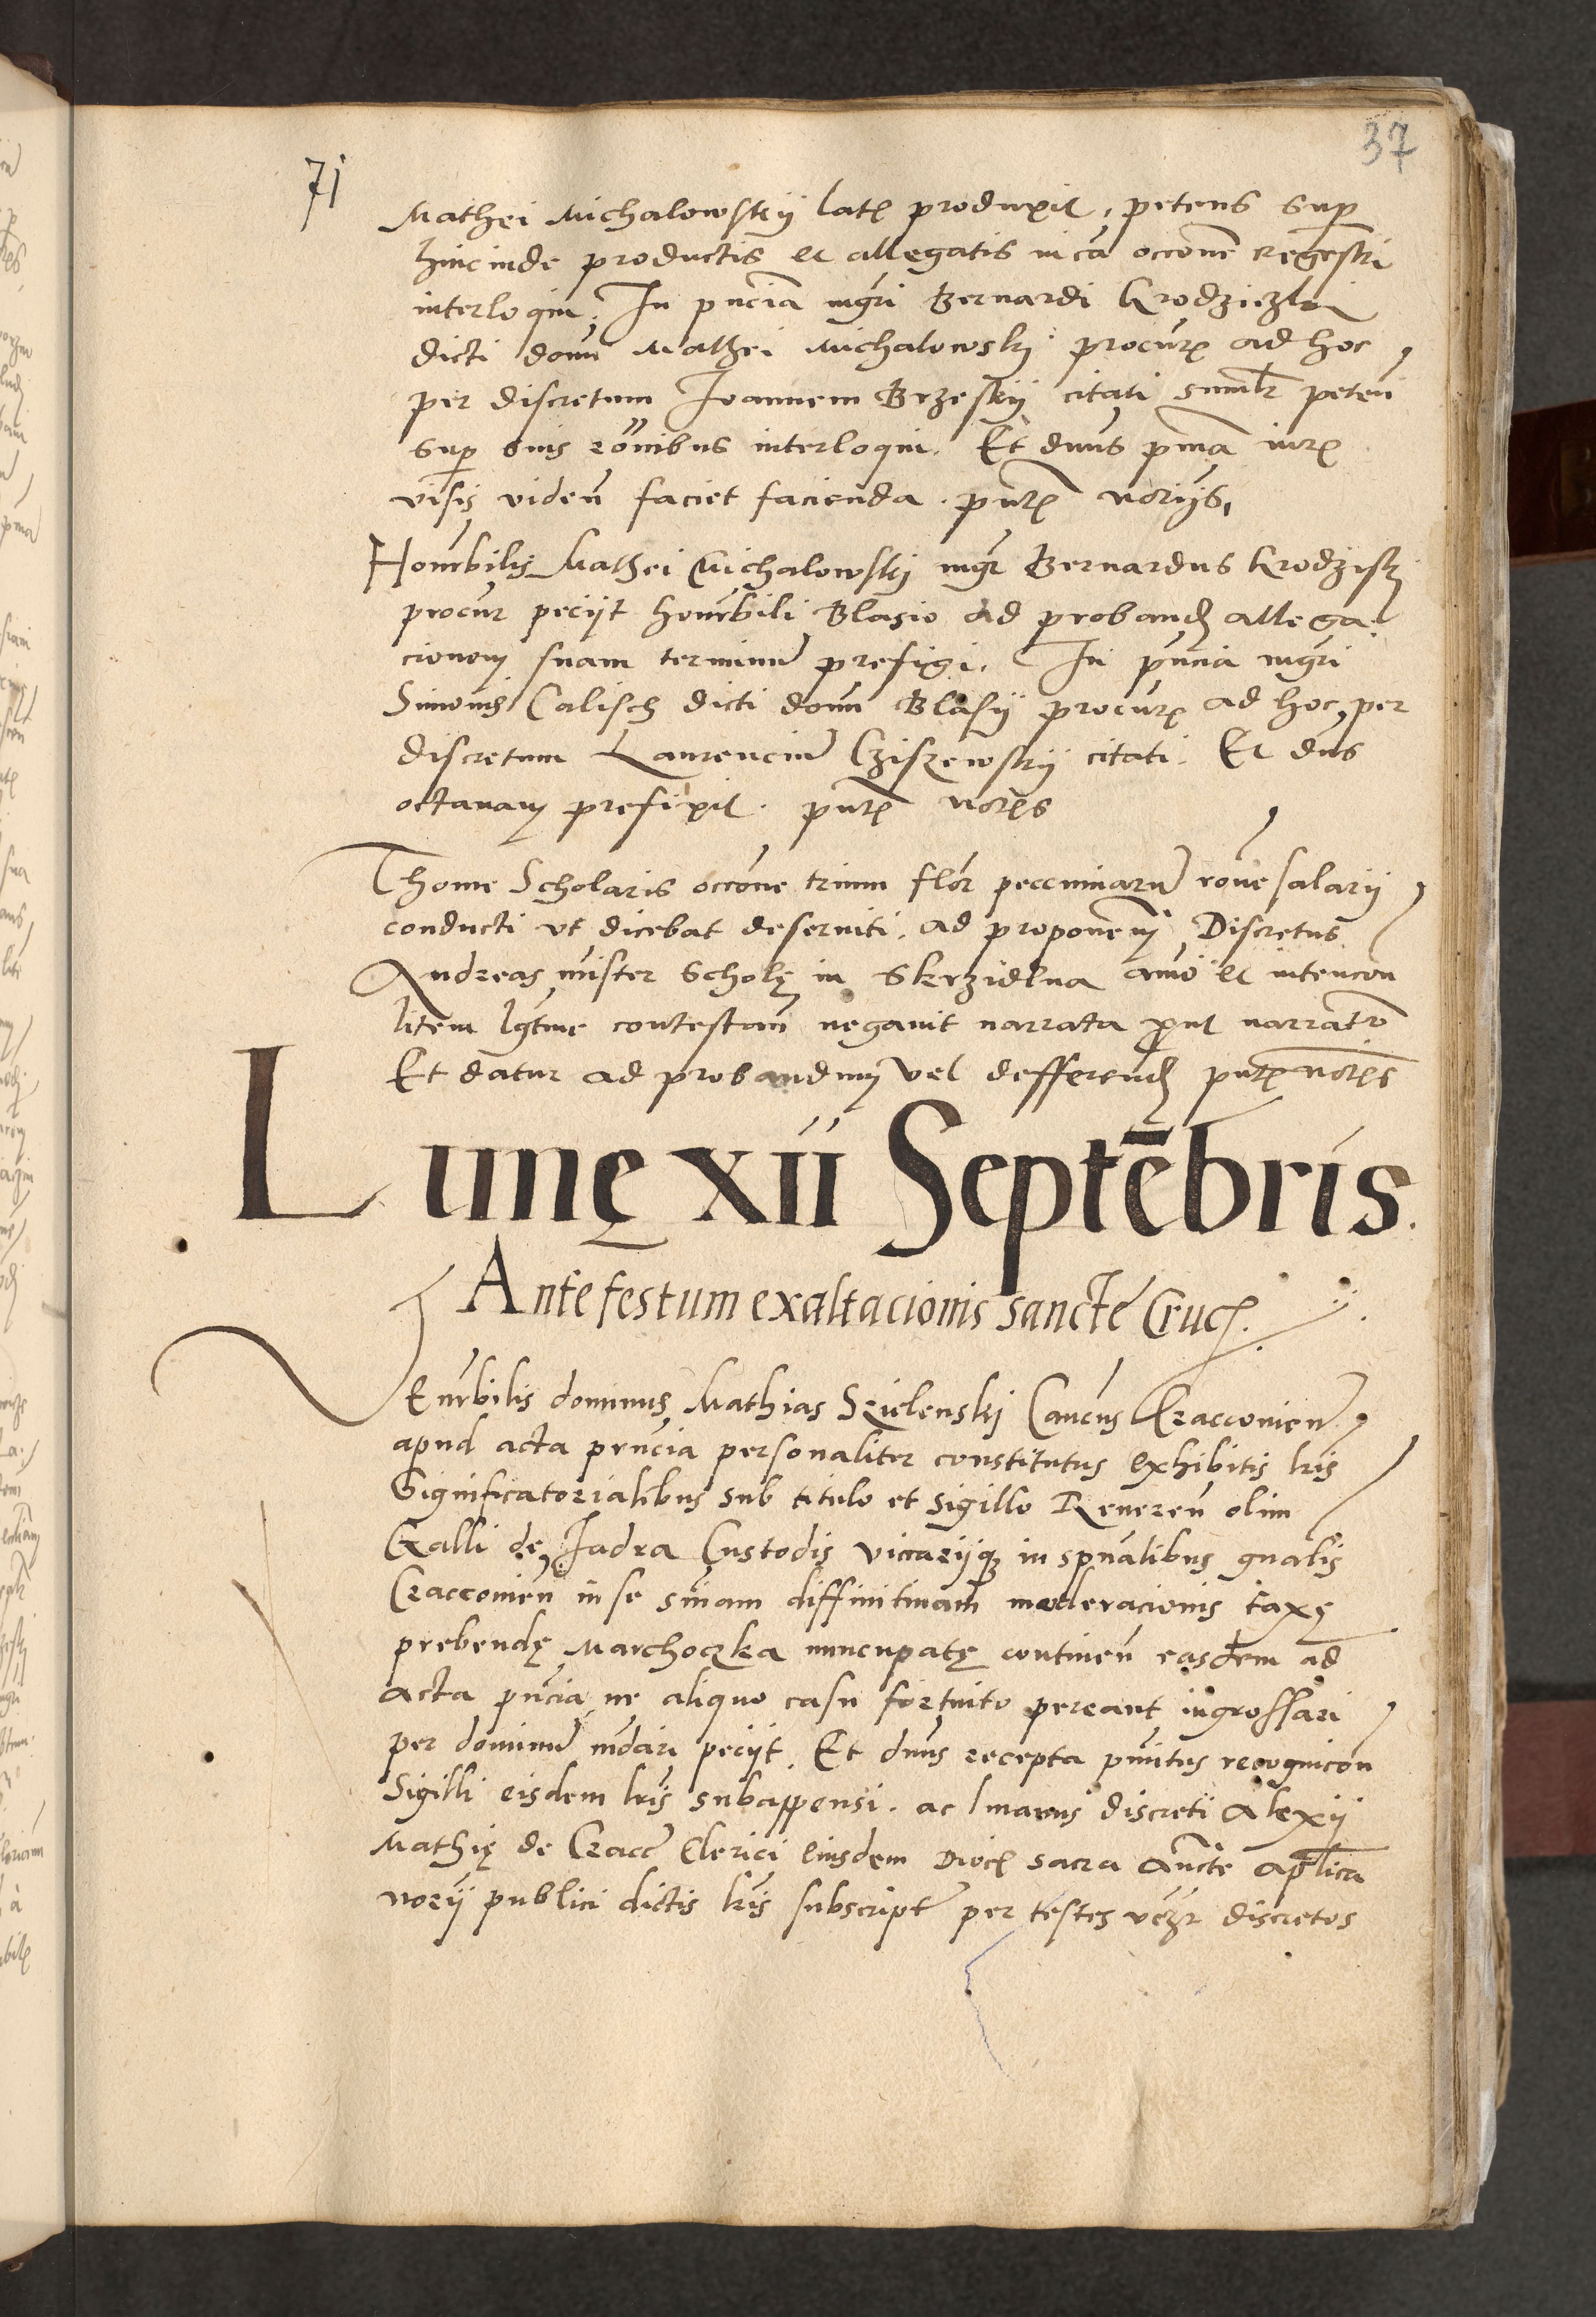 37
71
Mathei Michalowskij latꝭ produxit, petens sup
hincinde productis et allegatis in cā occōne regestri
interloqui. In pn̄cia mgri Bernardi Krodziczki
dicti domī Mathei Michalowskj procurꝭ ad hoc
per discretum Joannem Brzeskij citati simlr peteñ
sup suis rōnibus interloqui. Et dnus pma iurꝭ
visis videñ faciet facienda. pntꝭ notrijs,
Honrbilis Mathei Michalowskj mgr Bernardus Krodzisk
procur pecijt honrbili Blasio ad proband allega
cionem suam terminū prefigi. In pn̄cia mgri
Simonis Calisch dicti domī Blasij procurꝭ ad hoc per
discretum Laurenciū Cziszewskij citati. Et dn̄s
octavam prefixit. pntꝭ notꝭs
Thome Scholaris occōne trium flor pecuniarū rōne salarij
conducti ut dicebat deserviti. ad proponen Discretus
Andreas mister Scholę in Skrzidlna aīo et intencon
litem lgtme contestan̄ negavit narrata put narrantr
Et datur ad probandum vel defferend pntꝭ notꝭs
Lunę xii Septēbris.
Ante festum exaltacionis sancte Crucꝭ.
Venrbilis dominus Mathias Szielenskj Canc̄us Craccovień
apud acta pn̄cia personaliter constitutus exhibitis lr̄is
Significatorialibus sub titulo et sigillo Revereñ olim
Galli de Jadra Custodis vicarijqꝫ in spūalibus gnalis
Craccovień in se snīam diffinitivam moderacionis taxę
prebendę Marchoczka nuncupatę contineñ easdem ad
acta pn̄cia ne aliquo casu fortuito pereant ingrossari
per dominū mdari pecijt. Et dnus recepta pmitus recognicon
Sigilli eisdem lr̄is subappensi. ac manus discreti Alexij
Mathię de Cracē Clerici eiusdem Diocꝭ sacra aucte aplica
notrij publici dictis lr̄is subscript per testes vcꝫ discretos